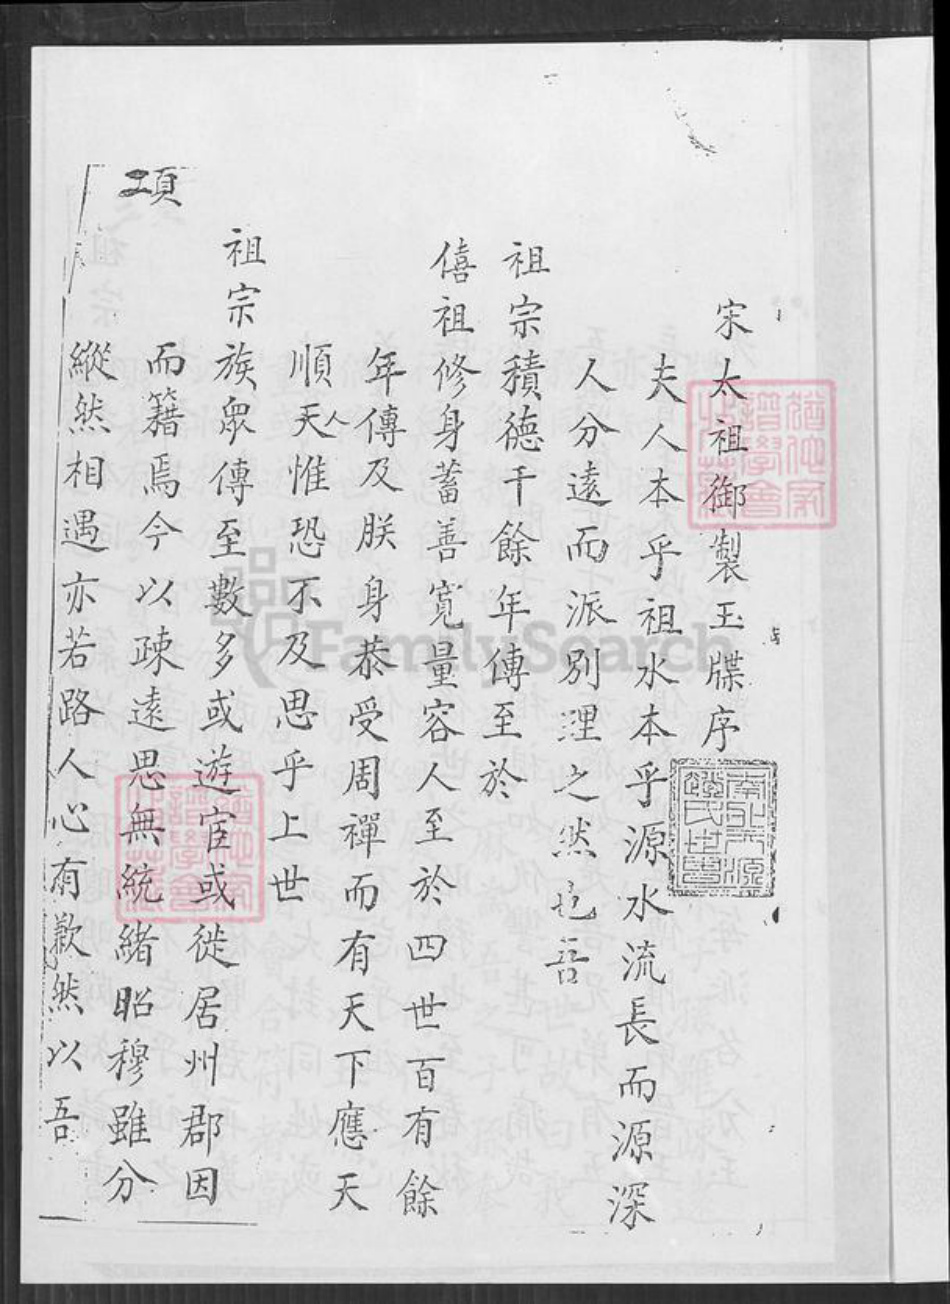 宋太祖御製玉牒序
夫人本乎祖水本乎源水流長而源深
人分遠而派別理之然也吾
祖宗積德千餘年傳至於
僖祖修身蓄善寬量容人至於四世百有餘
年傳及朕身恭受周禪而有天下應天
順天人惟恐不及思乎上世
祖宗族眾傳至數多或遊宦或徙居州郡因
而籍焉今以疎遠思無統緒昭穆雖分
縱然相遇亦若路人心有歉然以吾
二頁
FamilySearch